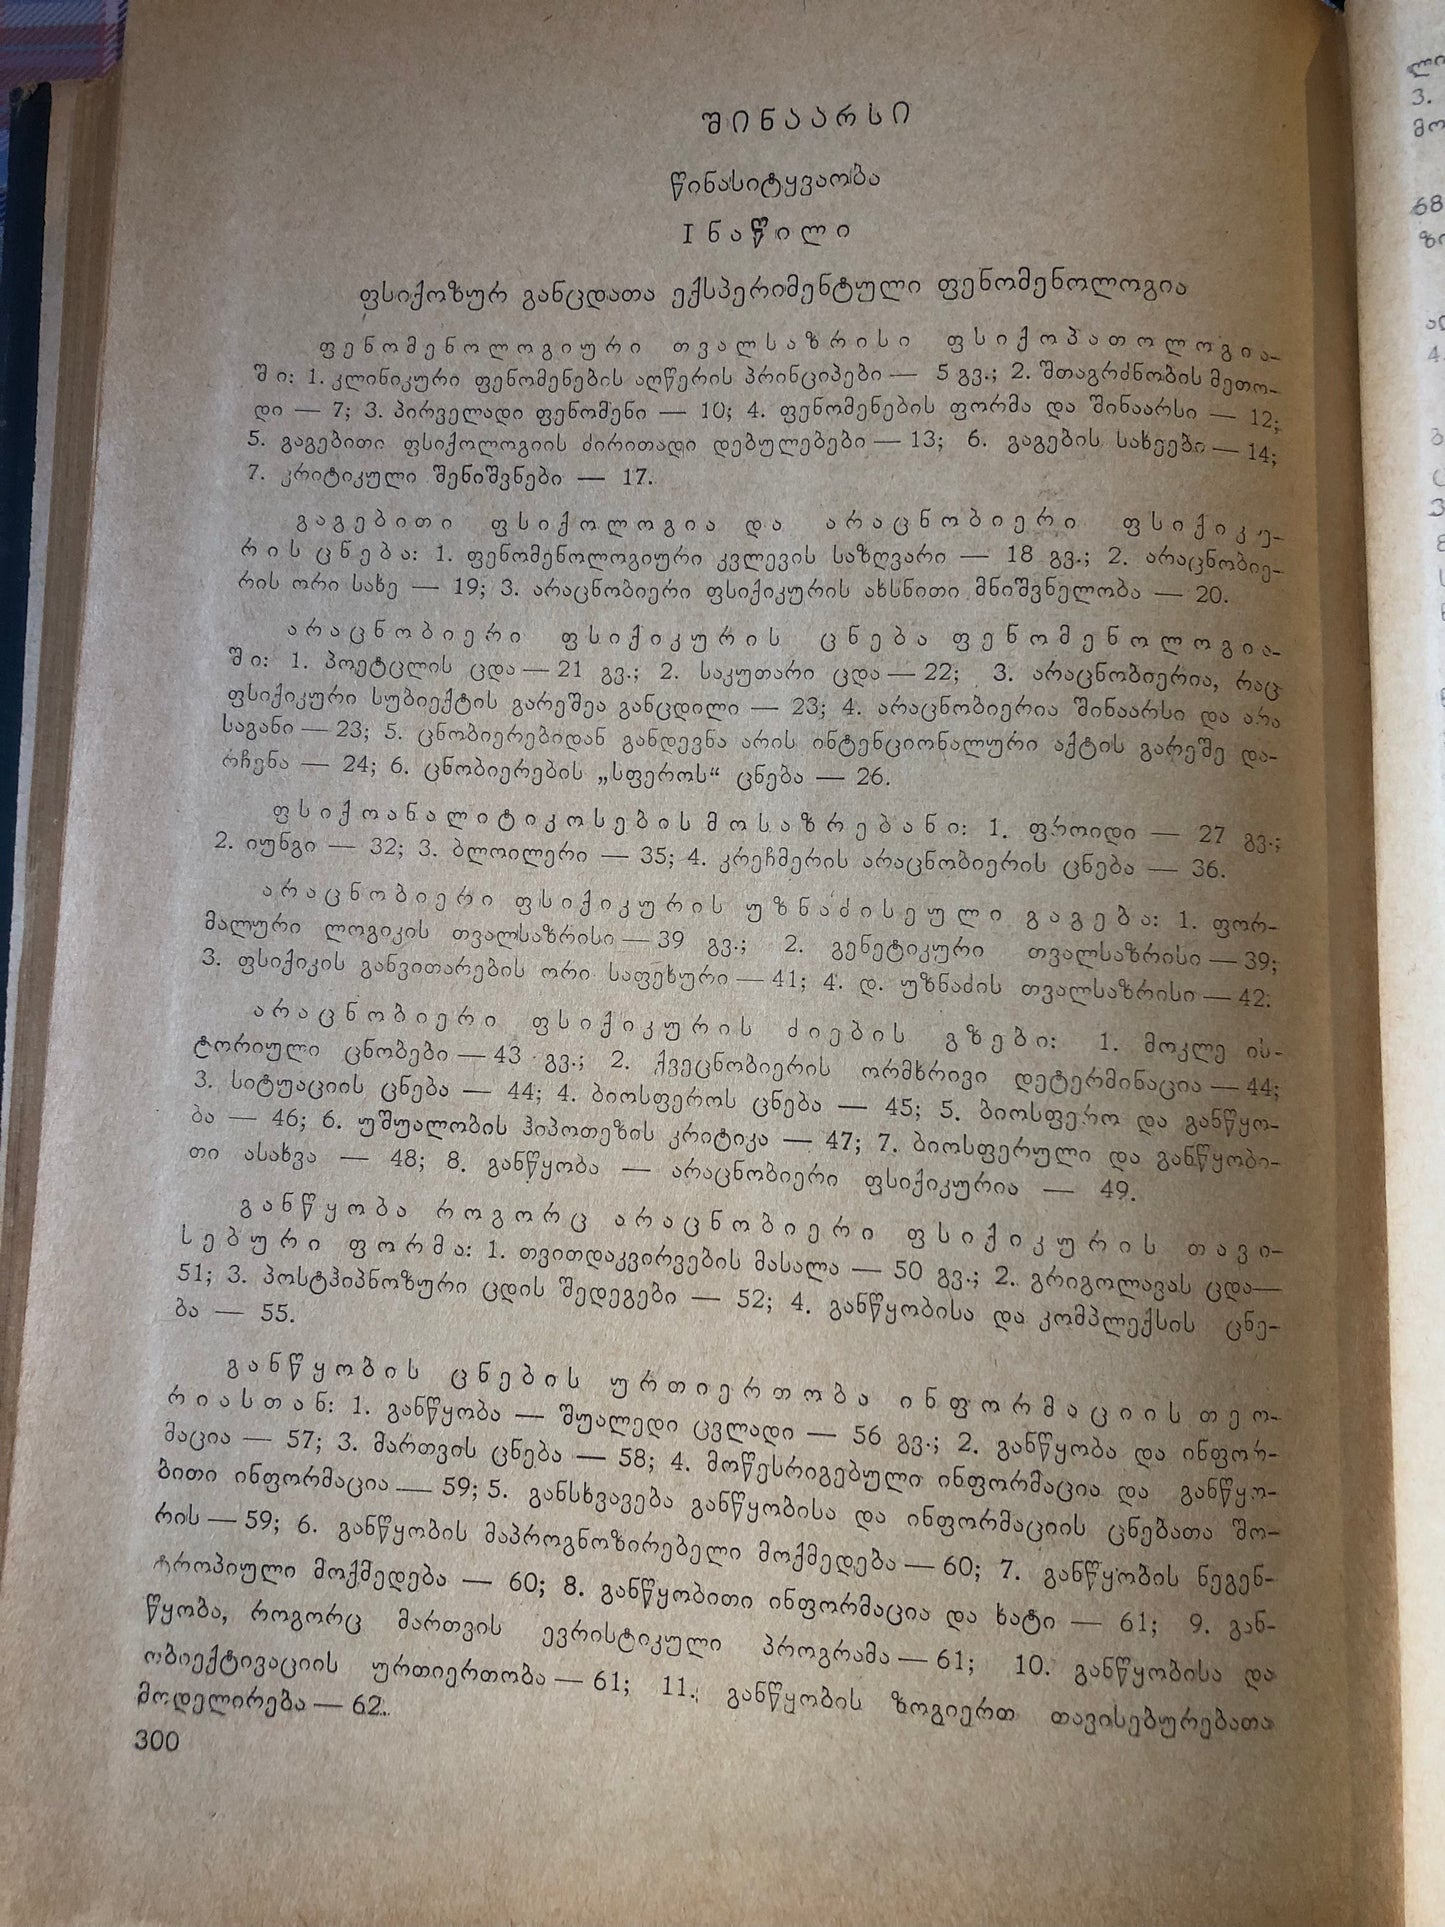 ᲨᲘᲜᲐᲐᲠᲡᲘ
წინასიტყვაობა
I ნაწილი
ფსიქოზურ განცდათა ექსპერიმენტული ფენომენოლოგია
ფენომენოლოგიური თვალსაზრისი ფსიქოპათოლოგია-
ში: 1. კლინიკური ფენომენების აღწერის პრინციპები — 5 გვ.; 2. შთაგრძნობის მეთო-
დი — 7; 3. პირველადი ფენომენი — 10; 4. ფენომენების ფორმა და შინაარსი — 12;
5. გაგებითი ფსიქოლოგიის ძირითადი დებულებები — 13; 6. გაგების სახეები — 14;
7. კრიტიკული შენიშვნები — 17.
გაგებითი ფსიქოლოგია და არაცნობიერი ფსიქიკუ-
რის ცნება: 1. ფენომენოლოგიური კვლევის საზღვარი — 18 გვ.; 2. არაცნობიე-
რის ორი სახე — 19; 3. არაცნობიერი ფსიქიკურის ახსნითი მნიშვნელობა — 20.
არაცნობიერი ფსიქიკურის ცნება ფენომენოლოგია-
ში: 1. პოეტცლის ცდა — 21 გვ.; 2. საკუთარი ცდა — 22; 3. არაცნობიერია, რაც
ფსიქიკური სუბიექტის გარეშეა განცდილი — 23; 4. არაცნობიერია შინაარსი და არა
საგანი — 23; 5. ცნობიერებიდან განდევნა არის ინტენციონალური აქტის გარეშე და-
რჩენა — 24; 6. ცნობიერების „სფეროს“ ცნება — 26.
ფსიქოანალიტიკოსების მოსაზრებანი: 1. ფროიდი — 27 გვ.;
2. იუნგი — 32; 3. ბლოილერი — 35; 4. კრეჩმერის არაცნობიერის ცნება — 36.
არაცნობიერი ფსიქიკურის უზნაძისეული გაგება: 1. ფორ-
მალური ლოგიკის თვალსაზრისი — 39 გვ.; 2. გენეტიკური თვალსაზრისი — 39;
3. ფსიქიკის განვითარების ორი საფეხური — 41; 4. დ. უზნაძის თვალსაზრისი — 42.
არაცნობიერი ფსიქიკურის ძიების გზები: 1. მოკლე ის-
ტორიული ცნობები — 43 გვ.; 2. ქვეცნობიერის ორმხრივი დეტერმინაცია — 44;
3. სიტუაციის ცნება — 44; 4. ბიოსფეროს ცნება — 45; 5. ბიოსფერო და განწყო-
ბა — 46; 6. უშუალობის ჰიპოთეზის კრიტიკა — 47; 7. ბიოსფერული და განწყობი-
თი ასახვა — 48; 8. განწყობა — არაცნობიერი ფსიქიკურია — 49.
განწყობა როგორც არაცნობიერი ფსიქიკურის თავი-
სებური ფორმა: 1. თვითდაკვირვების მასალა — 50 გვ.; 2. გრიგოლავას ცდა —
51; 3. პოსტჰიპნოზური ცდის შედეგები — 52; 4. განწყობისა და კომპლექსის ცნე-
ბა — 55.
განწყობის ცნების ურთიერთობა ინფორმაციის თეო-
რიასთან: 1. განწყობა — შუალედი ცვლადი — 56 გვ.; 2. განწყობა და ინფორ-
მაცია — 57; 3. მართვის ცნება — 58; 4. მოწესრიგებული ინფორმაცია და განწყო-
ბითი ინფორმაცია — 59; 5. განსხვავება განწყობისა და ინფორმაციის ცნებათა შო-
რის — 59; 6. განწყობის მაპროგნოზირებელი მოქმედება — 60; 7. განწყობის ნეგენ-
ტროპიული მოქმედება — 60; 8. განწყობითი ინფორმაცია და ხატი — 61; 9. გან-
წყობა, როგორც მართვის ევრისტიკული პროგრამა — 61; 10. განწყობისა და
ობიექტივაციის ურთიერთობა — 61; 11. განწყობის ზოგიერთ თავისებურებათა
მოდელირება — 62.
300